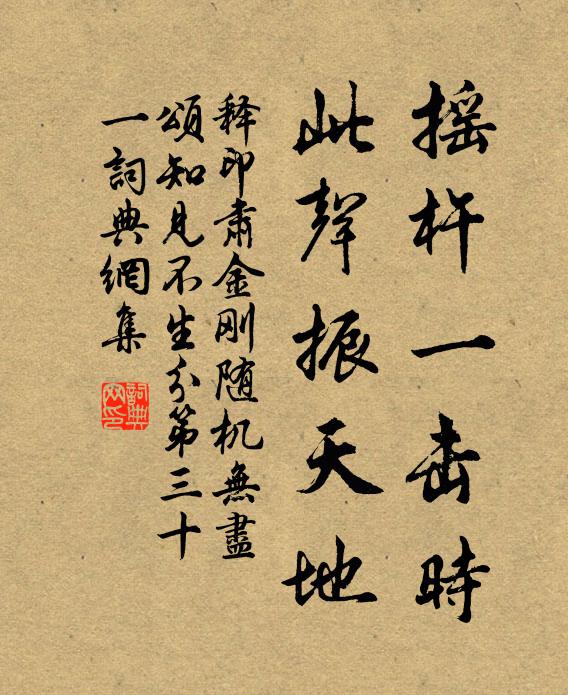 摇杵一击時
此聲振天地
释印肅金刚随机無盡
頌知見不生分第三十
一詞典網集
詞典
网印